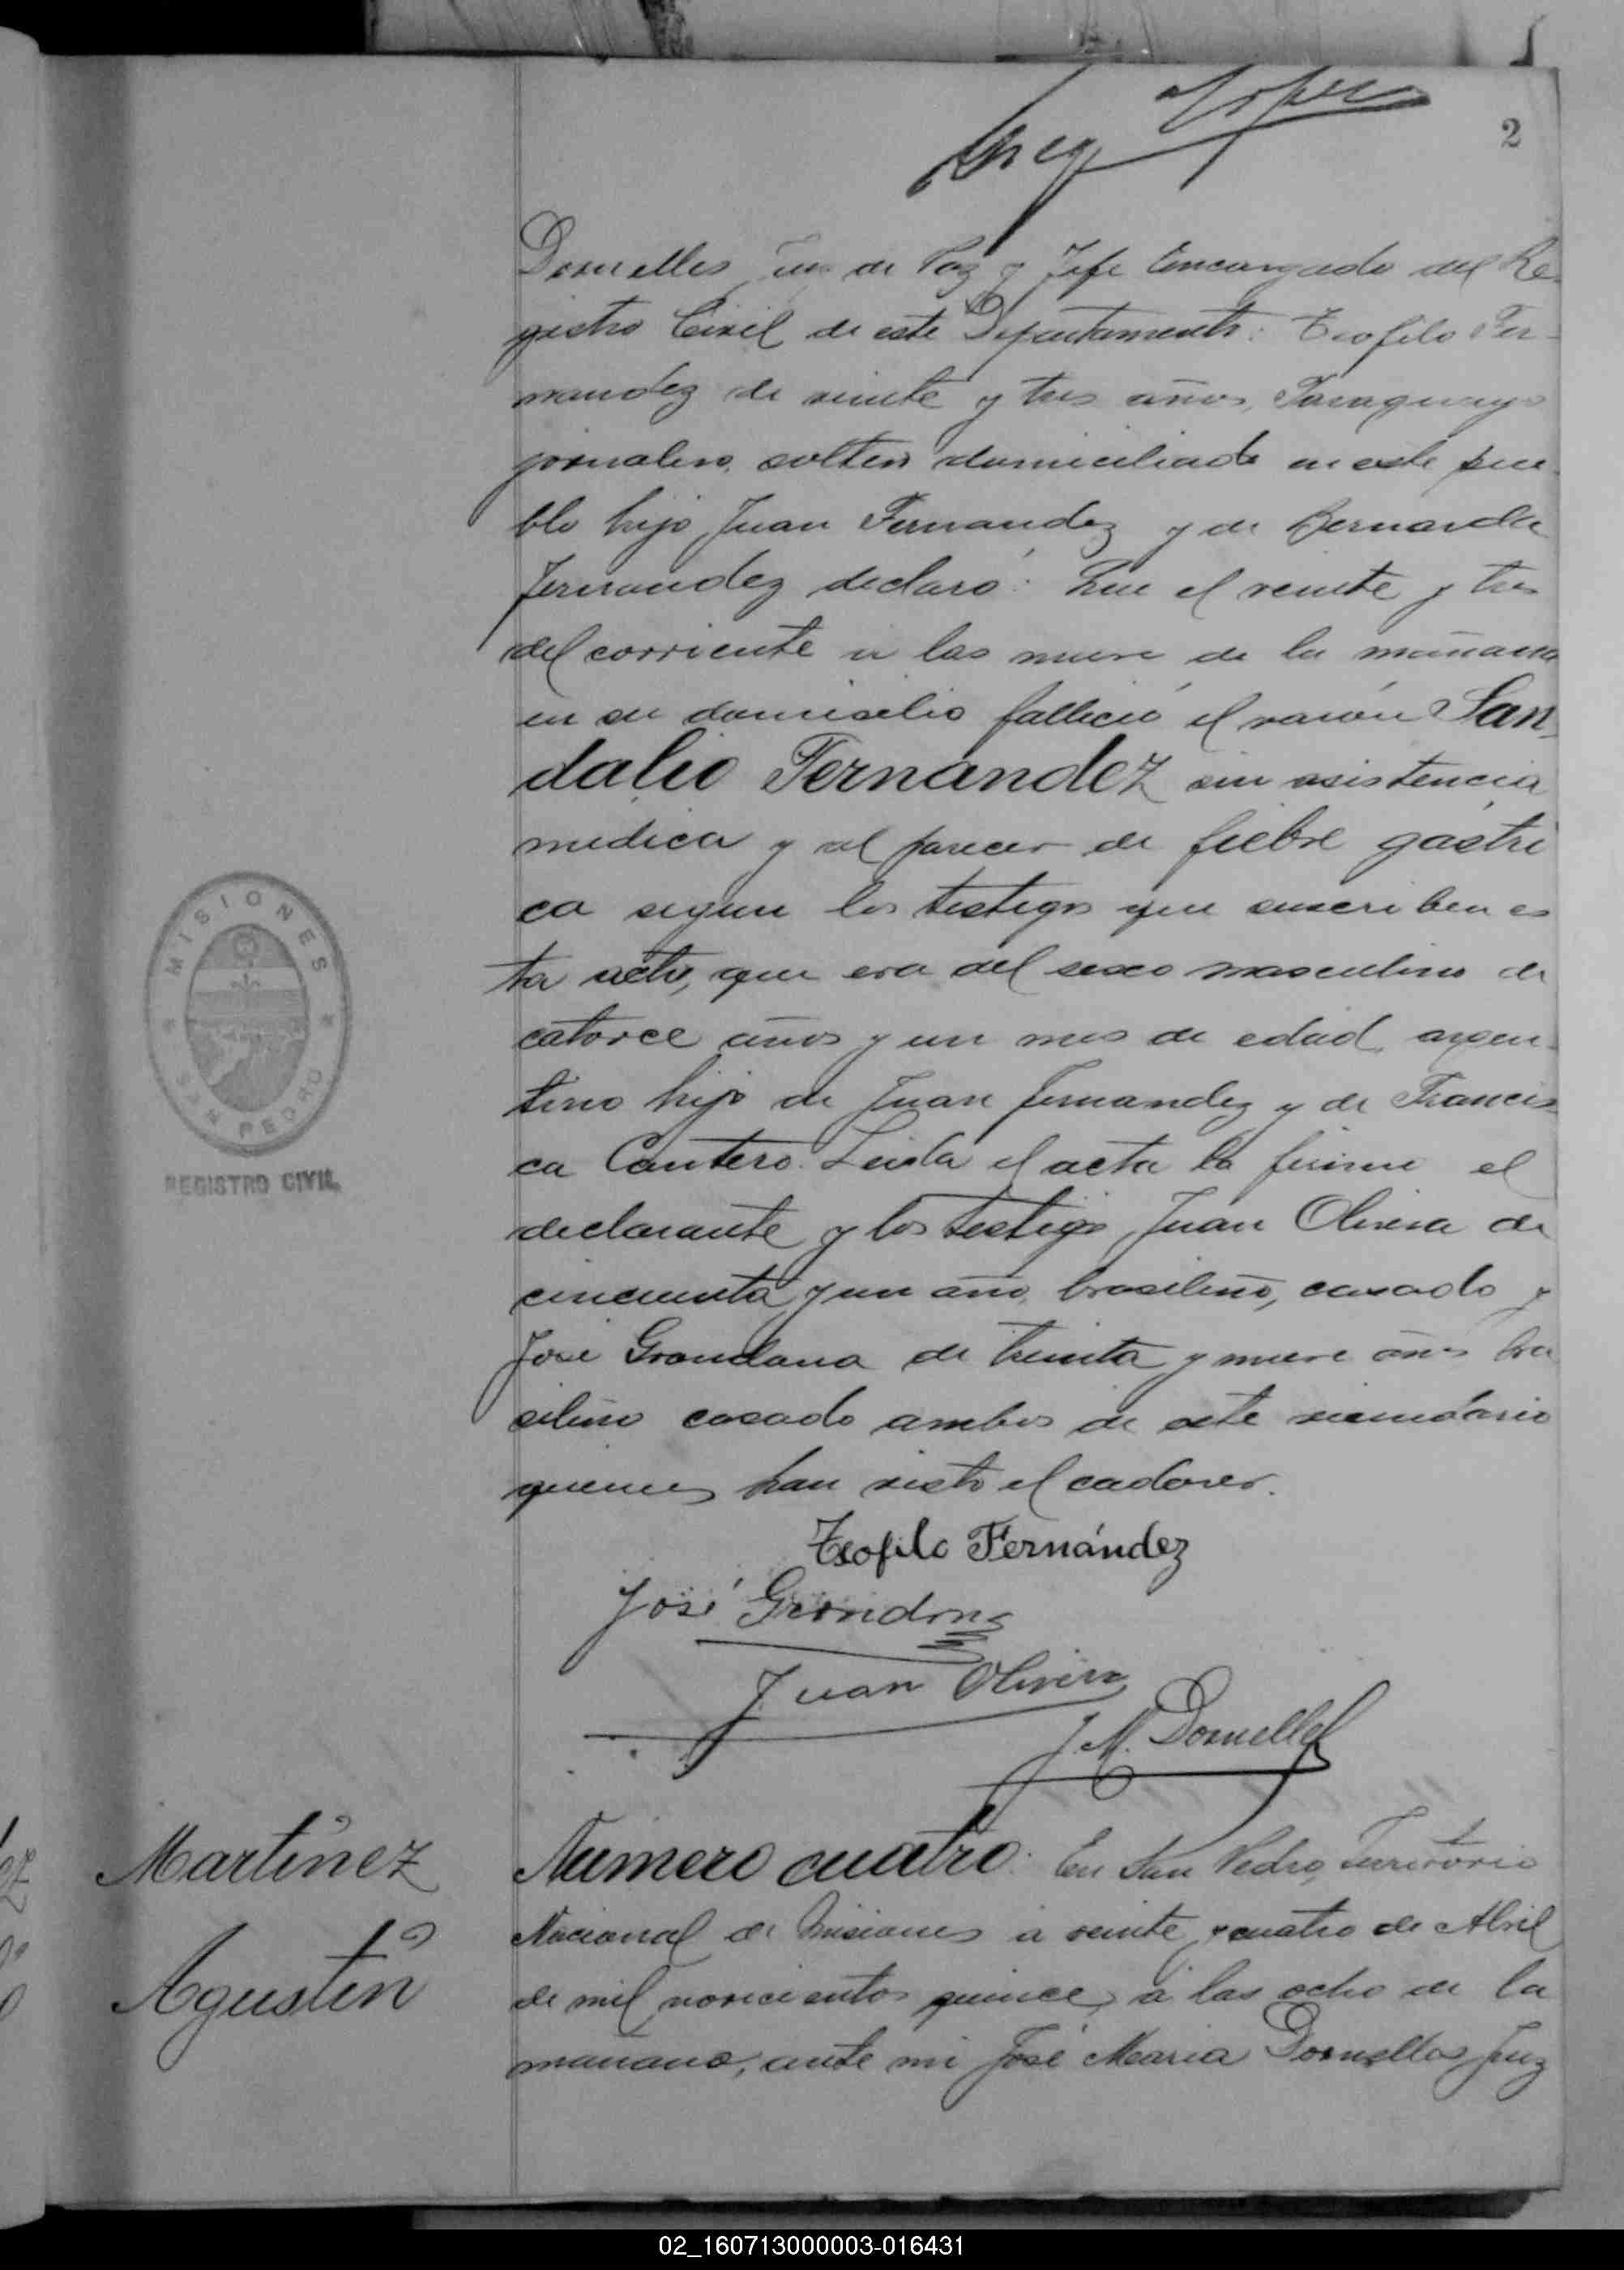 2
Dornelles Juez de Paz y Jefe Encargado del Re-
gistro Civil de este Departamento: Teofilo Fer-
nandez de veinte y tres años, Paraguayo
jornalero, soltero domiciliado en este pue-
blo hijo Juan Fernandez y de Bernarda
Fernandez declaró: Que el veinte y tres
del corriente á las nueve de la mañana
en su domicilio falleció el varón San-
dalio Fernández sin asistencia
medica y al parecer de fiebre gástri
ca segun los testigos que suscriben es
ta acta, que era del sexo masculino de
catorce años y un mes de edad, argen-
tino hijo de Juan Fernandez y de Francis
ca Cantero. Leida el acta la firma el
declarante y los testigos Juan Olivera de
cincuenta y un año, brasileño, casado y
José Grondona de treinta y nueve años bra
sileño casado ambos de este vecindario
quienes han visto el cadaver.
Teofilo Fernández
José Grondona
Juan Olivera
J. M. Dornelles
MISIONES
SAN PEDRO
REGISTRO CIVIL
Martínez
Agustín
Número cuatro: En San Pedro, Territorio
Nacional de Misiones á veinte y cuatro de Abril
de mil novecientos quince, á las ocho de la
mañana, ante mi José Maria Dornelles Juez
02_160713000003-016431